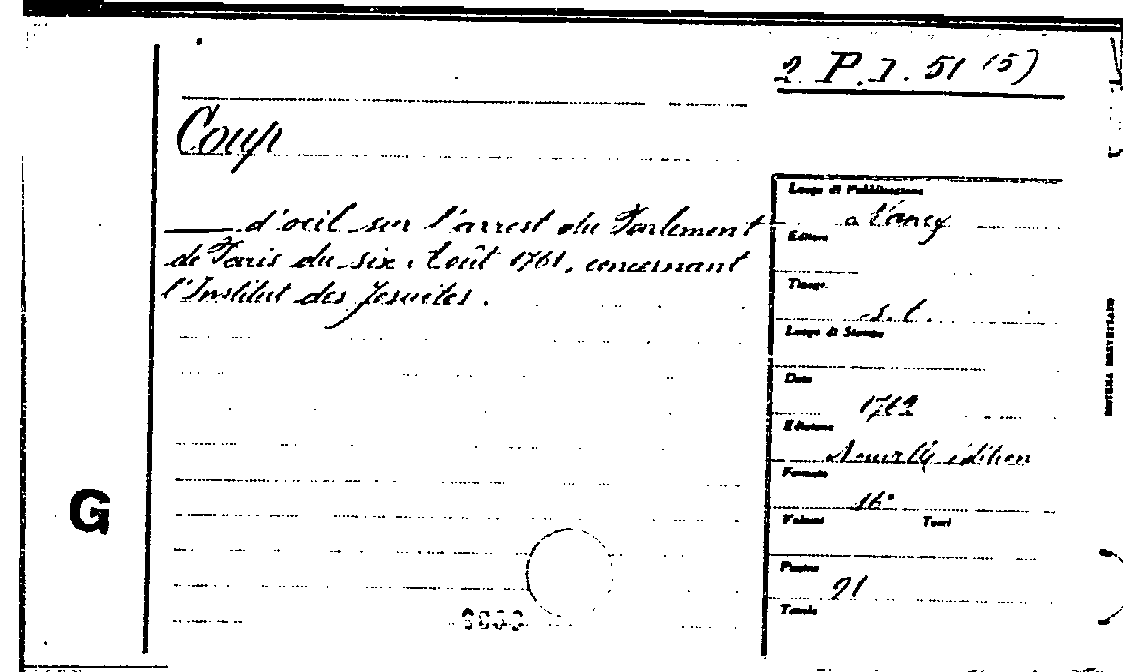 2 P.I. 51 (5)
Coup
d'oeil sur l'arrest du Parlement
de Paris du six Août 1761, concernant
l'Institut des Jesuites.
G
Luogo di Pubblicazione
a Nancy
Editore
Tipogr.
s.l.
Luogo di Stampa
Data
1762
Edizione
Nouvelle édition
Formato
16°
Volumi Tomi
Pagine
91
Tavole